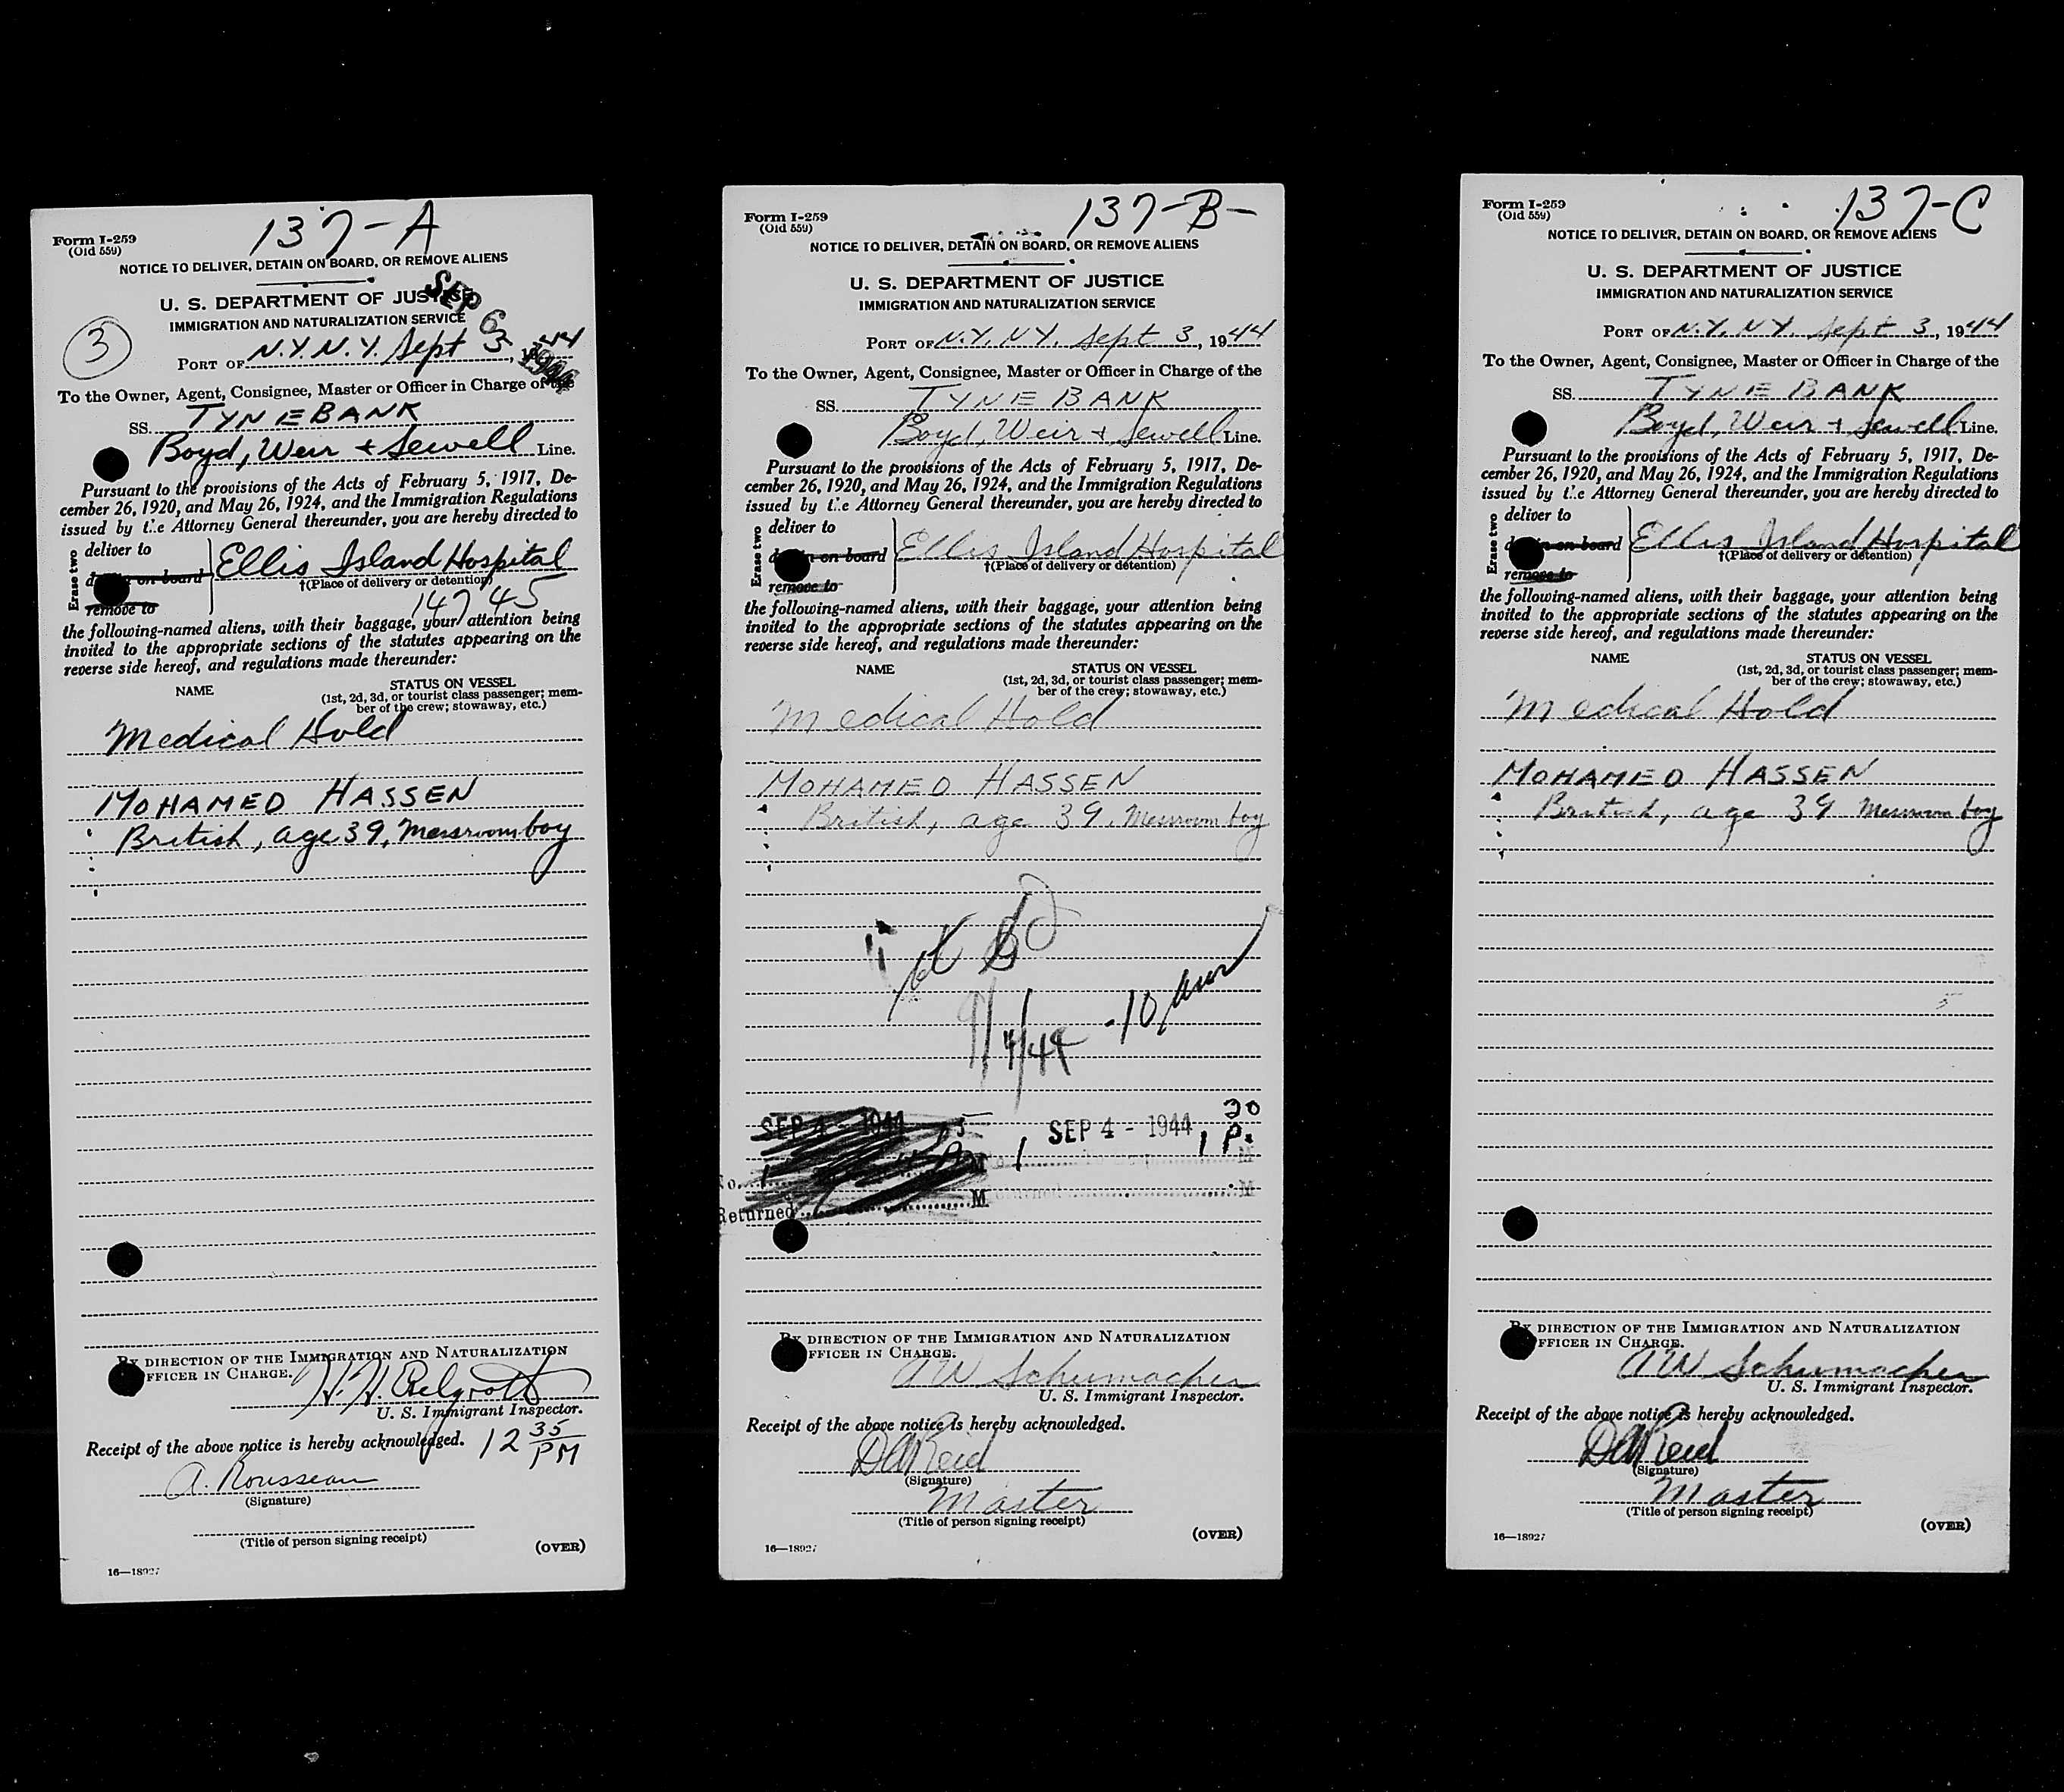 137-A
Form I-259
(Old 559)
NOTICE TO DELIVER, DETAIN ON BOARD, OR REMOVE ALIENS
U. S. DEPARTMENT OF JUSTICE
SEP 6 1944
IMMIGRATION AND NATURALIZATION SERVICE
3
PORT OF N.Y. N.Y. Sept 3, 1944
To the Owner, Agent, Consignee, Master or Officer in Charge of the
SS. TYNEBANK
Boyd, Weir + Sewell Line.
Pursuant to the provisions of the Acts of February 5, 1917, De-
cember 26, 1920, and May 26, 1924, and the Immigration Regulations
issued by the Attorney General thereunder, you are hereby directed to
Erase two
deliver to
on board
Ellis Island Hospital
†(Place of delivery or detention)
remove to
14745
the following-named aliens, with their baggage, your attention being
invited to the appropriate sections of the statutes appearing on the
reverse side hereof, and regulations made thereunder:
NAME
STATUS ON VESSEL
(1st, 2d, 3d, or tourist class passenger; mem-
ber of the crew; stowaway, etc.)
Medical Hold
MOHAMED HASSEN
British, age 39, Messroomboy
BY DIRECTION OF THE IMMIGRATION AND NATURALIZATION
OFFICER IN CHARGE.
U. S. Immigrant Inspector.
Receipt of the above notice is hereby acknowledged. 12 35 PM
A. Rousseau
(Signature)
(Title of person signing receipt)
(OVER)
16—18927
137-B-
Form I-259
(Old 559)
NOTICE TO DELIVER, DETAIN ON BOARD, OR REMOVE ALIENS
U. S. DEPARTMENT OF JUSTICE
IMMIGRATION AND NATURALIZATION SERVICE
PORT OF N.Y. N.Y. Sept 3, 1944
To the Owner, Agent, Consignee, Master or Officer in Charge of the
SS. TYNE BANK
Boyd, Weir + Sewell Line.
Pursuant to the provisions of the Acts of February 5, 1917, De-
cember 26, 1920, and May 26, 1924, and the Immigration Regulations
issued by the Attorney General thereunder, you are hereby directed to
Erase two
deliver to
on board
Ellis Island Hospital
†(Place of delivery or detention)
remove to
the following-named aliens, with their baggage, your attention being
invited to the appropriate sections of the statutes appearing on the
reverse side hereof, and regulations made thereunder:
NAME
STATUS ON VESSEL
(1st, 2d, 3d, or tourist class passenger; mem-
ber of the crew; stowaway, etc.)
Medical Hold
MOHAMED HASSEN
British, age 39, Messroom boy
9/4/44
SEP 4 - 1944
SEP 4 - 1944, 1 30 P.
Returned M
BY DIRECTION OF THE IMMIGRATION AND NATURALIZATION
OFFICER IN CHARGE.
A W Schumacher
U. S. Immigrant Inspector.
Receipt of the above notice is hereby acknowledged.
DA Reid
(Signature)
Master
(Title of person signing receipt)
(OVER)
16—18927
137-C
Form I-259
(Old 559)
NOTICE TO DELIVER, DETAIN ON BOARD, OR REMOVE ALIENS
U. S. DEPARTMENT OF JUSTICE
IMMIGRATION AND NATURALIZATION SERVICE
PORT OF N.Y. N.Y. Sept 3, 1944
To the Owner, Agent, Consignee, Master or Officer in Charge of the
SS. TYNE BANK
Boyd, Weir + Sewell Line.
Pursuant to the provisions of the Acts of February 5, 1917, De-
cember 26, 1920, and May 26, 1924, and the Immigration Regulations
issued by the Attorney General thereunder, you are hereby directed to
Erase two
deliver to
on board
Ellis Island Hospital
†(Place of delivery or detention)
remove to
the following-named aliens, with their baggage, your attention being
invited to the appropriate sections of the statutes appearing on the
reverse side hereof, and regulations made thereunder:
NAME
STATUS ON VESSEL
(1st, 2d, 3d, or tourist class passenger; mem-
ber of the crew; stowaway, etc.)
Medical Hold
MOHAMED HASSEN
British, age 39 Messroom boy
BY DIRECTION OF THE IMMIGRATION AND NATURALIZATION
OFFICER IN CHARGE.
A W Schumacher
U. S. Immigrant Inspector.
Receipt of the above notice is hereby acknowledged.
DA Reid
(Signature)
Master
(Title of person signing receipt)
(OVER)
16—18927